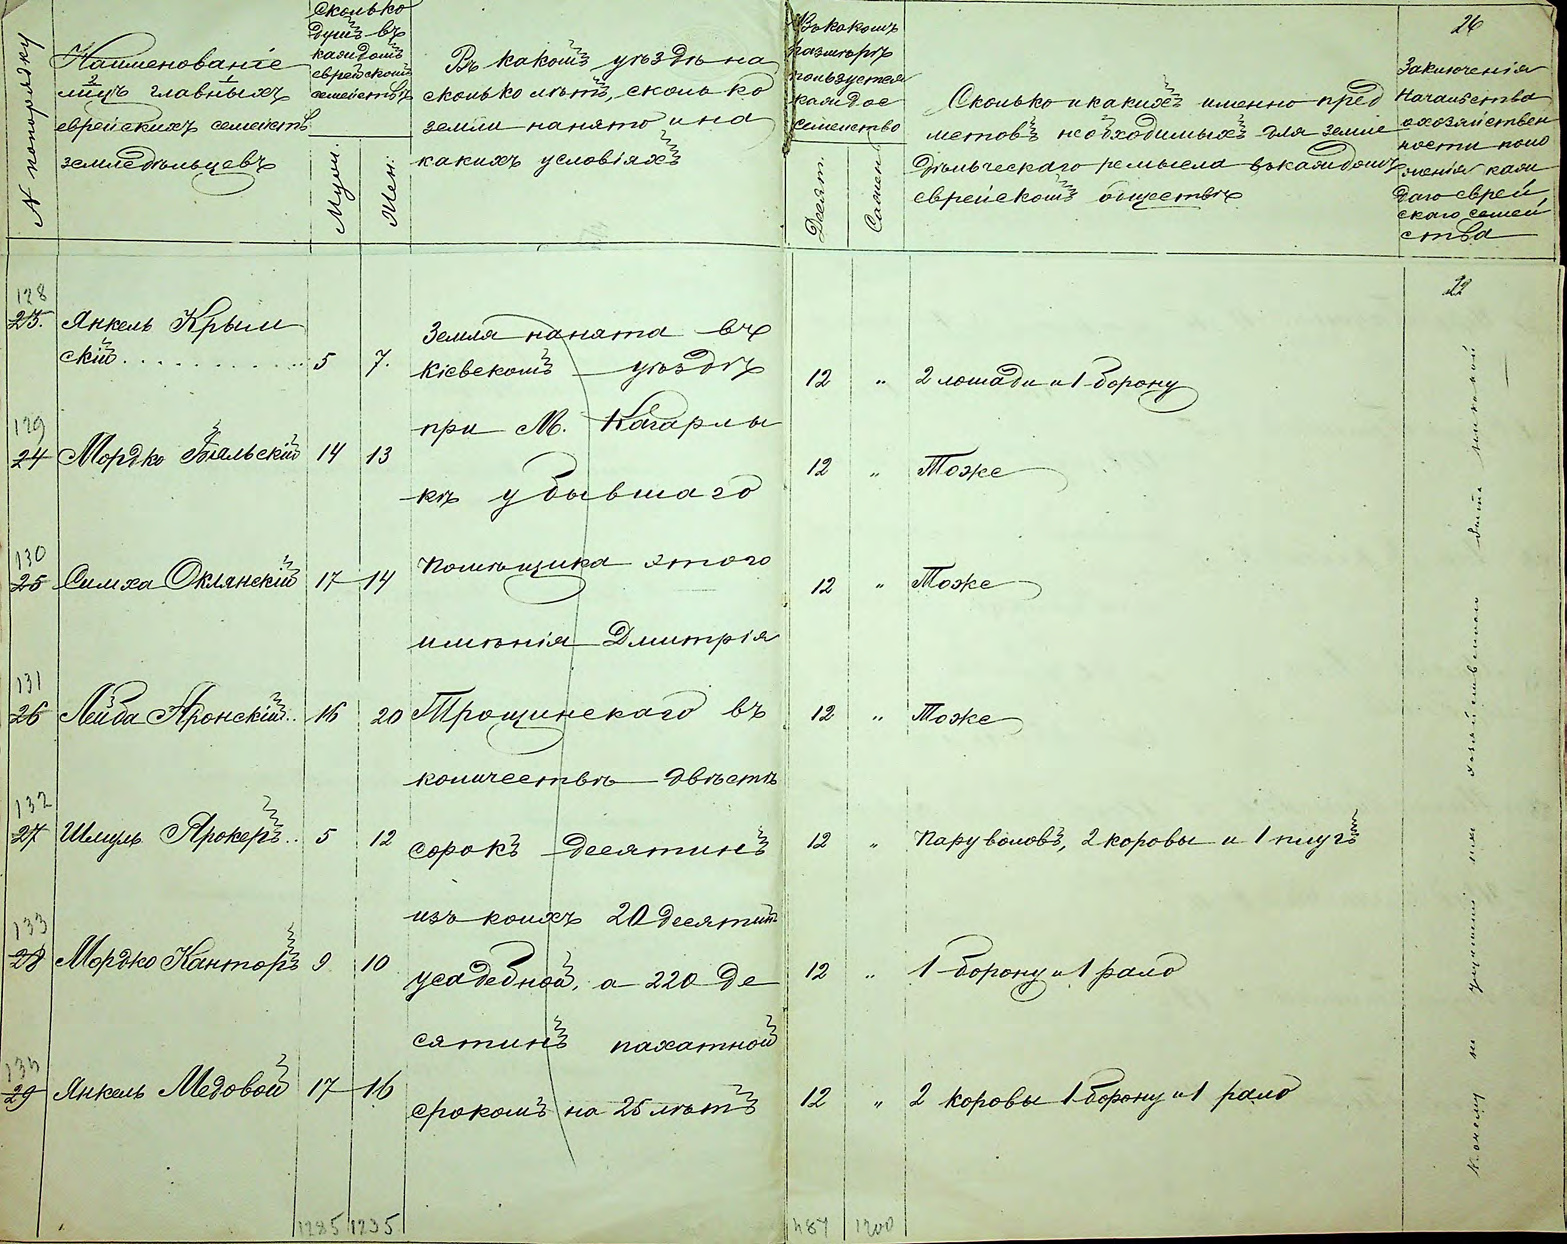 № по порядку
Наименованіе
2 1
лицъ главныхъ
еврейскихъ семействъ
земледѣльцевъ
Сколько
душъ въ
каждомъ
еврейскомъ
семействѣ
Муж.
Жен.
Въ какомъ уѣздѣ на
сколько лѣтъ, сколько
земли нанято и на
какихъ условіяхъ
Въ какомъ
размѣрѣ
пользуется
каждое
семейство
Десят.
Сажен.
Сколько и какихъ именно пред
метовъ необходимыхъ для земле
дѣльческаго ремысела въ каждомъ
еврейскомъ обществѣ
26
Заключенія
Начальства
о хозяйствен
ности поло
женія каж
даго еврей
скаго семей
ства
22
128
23. Янкель Крым
скій 5 7. 12 „ 2 лошади и 1 борону
129
24 Мордко Бѣльскій 14 13 12 „ Тоже
130
25 Симха Оклянскій 17 14 12 „ Тоже
131
26 Лейба Яронскій 16 20 12 „ Тоже
132
27 Шмуль Ярокеръ 5 12 12 „ Пару воловъ, 2 коровы и 1 плугъ
133
28 Мордко Канторъ 9 10 12 „ 1 борону и 1 рало
134
29 Янкель Медовой 17 16 12 „ 2 коровы 1 борону и 1 рало
Земля нанята въ
Кіевскомъ уѣздѣ
при М. Кагарлы
кѣ у бывшаго
помѣщика этого
имѣнія Дмитрія
Трощинскаго въ
количествѣ двѣстѣ
сорокъ десятинъ
изъ коихъ 20 десятинъ
усадебной, а 220 де
сятинъ пахатной
срокомъ на 25 лѣтъ
1285 1235 487 1200